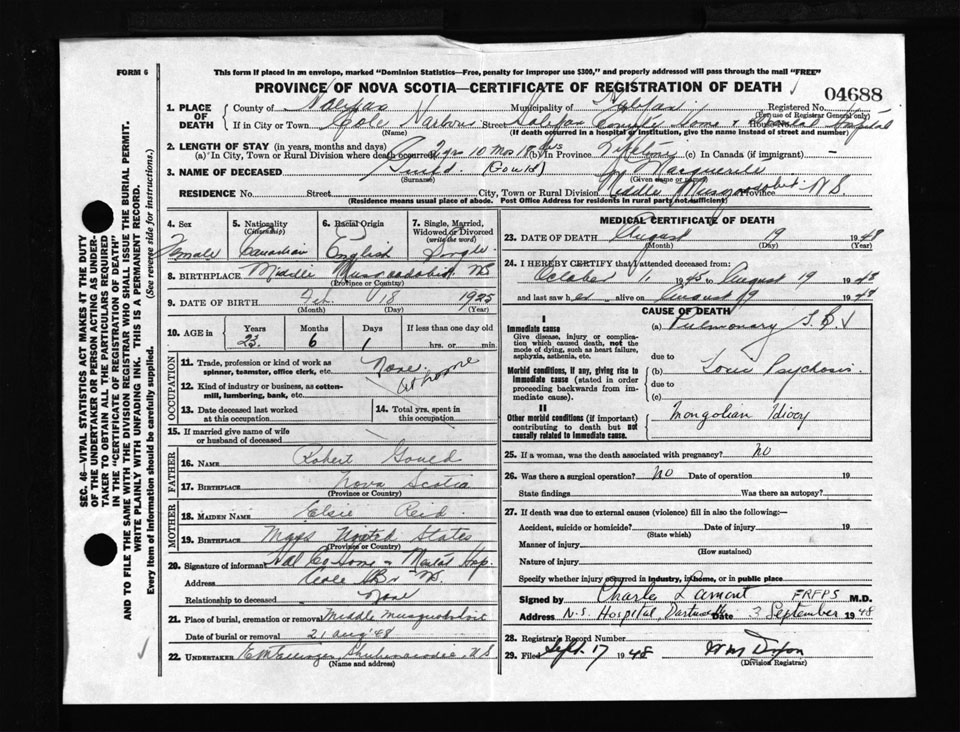 FORM 6
This form if placed in an envelope, marked "Dominion Statistics—Free, penalty for improper use $300," and properly addressed will pass through the mail "FREE"
PROVINCE OF NOVA SCOTIA—CERTIFICATE OF REGISTRATION OF DEATH
04688
1. PLACE OF DEATH
County of Halifax Municipality of Halifax Registered No.
(For use of Registrar General only)
If in City or Town Cole Harbour Street Halifax County Home & Mental Hospital
(Name) (If death occurred in a hospital or institution, give the name instead of street and number)
2. LENGTH OF STAY (in years, months and days)
(a) In City, Town or Rural Division where death occurred 2 yrs 10 Mos 18 dys (b) In Province Lifetime (c) In Canada (if immigrant) —
3. NAME OF DECEASED (Gould) Marguerite
(Surname) (Given name or names)
RESIDENCE No. Street City, Town or Rural Division Middle Musquodoboit Province N.S.
(Residence means usual place of abode. Post Office Address for residents in rural party not sufficient)
SEC. 46—VITAL STATISTICS ACT MAKES IT THE DUTY
OF THE UNDERTAKER OR PERSON ACTING AS UNDER-
TAKER TO OBTAIN ALL THE PARTICULARS REQUIRED
IN THE "CERTIFICATE OF REGISTRATION OF DEATH"
AND TO FILE THE SAME WITH THE DIVISION REGISTRAR WHO SHALL ISSUE THE BURIAL PERMIT.
WRITE PLAINLY WITH UNFADING INK. THIS IS A PERMANENT RECORD.
Every item of information should be carefully supplied. (See reverse side for instructions.)
4. Sex 5. Nationality (Citizenship) 6. Racial Origin 7. Single, Married, Widowed or Divorced (write the word)
Female Canadian English Single
8. BIRTHPLACE Middle Musquodoboit NS
(Province or Country)
9. DATE OF BIRTH Feb. 18 1925
(Month) (Day) (Year)
10. AGE in Years Months Days If less than one day old
23 6 1 hrs. or min.
OCCUPATION
11. Trade, profession or kind of work as
spinner, teamster, office clerk, etc. None
12. Kind of industry or business, as cotton-
mill, lumbering, bank, etc. at home
13. Date deceased last worked
at this occupation
14. Total yrs. spent in
this occupation
15. If married give name of wife
or husband of deceased
FATHER
16. NAME Robert Gould
17. BIRTHPLACE Nova Scotia
(Province or Country)
MOTHER
18. MAIDEN NAME Elsie Reid
19. BIRTHPLACE Mass United States
(Province or Country)
20. Signature of informant Hal Co Home & Mental Hosp.
Address Cole Hbr NS.
Relationship to deceased None
21. Place of burial, cremation or removal Middle Musquodoboit
Date of burial or removal 21 aug '48
22. UNDERTAKER Shubenacadie, N.S
(Name and address)
MEDICAL CERTIFICATE OF DEATH
23. DATE OF DEATH August 19 1948
(Month) (Day) (Year)
24. I HEREBY CERTIFY that I attended deceased from:
October 1, 1945 to August 19 1948
and last saw her alive on August 19 1948
CAUSE OF DEATH
I
Immediate cause
Give disease, injury or complica-
tion which caused death, not the
mode of dying, such as heart failure,
asphyxia, asthenia, etc.
(a) Pulmonary T.B.
due to
Morbid conditions, if any, giving rise to
immediate cause (stated in order
proceeding backwards from im-
mediate cause).
(b) Toxic Psychosis
due to
(c)
II
Other morbid conditions (if important)
contributing to death but not
causally related to immediate cause.
Mongolian Idiocy
25. If a woman, was the death associated with pregnancy? NO
26. Was there a surgical operation? NO Date of operation 19
State findings Was there an autopsy?
27. If death was due to external causes (violence) fill in also the following:—
Accident, suicide or homicide? Date of injury 19
(State which)
Manner of injury
(How sustained)
Nature of injury
Specify whether injury occurred in industry, in home, or in public place
Signed by Charles Lamont FRFPS M.D.
Address N.S. Hospital, Dartmouth Date 3 September 1948
28. Registrar's Record Number
29. Filed Sept. 17 1948 Wm Dixon
(Division Registrar)